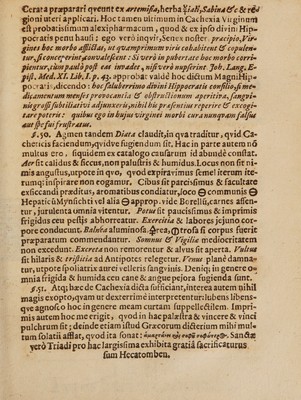 Cerata præparari queunt ex artemisia, herba Siali, Sabina & c & re-
gioni uteri applicari. Hoc tamen ultimum in Cachexia Virginum
est probatissimum alexipharmacum, quod & ex ipso divini Hip-
pocratis penu hausi: ego verò inquit, Senex noster, præcipio, Vir-
gines hoc morbo afflictas, ut quamprimum viris cohabitent & copulen-
tur, si conceperint, convalescent: Si verò in pubertate hoc morbo corri-
piantur, cum paulò post eas invadet, nisi verò nupserint. Joh. Lang. E-
pist. Med. XI. Lib. I. p. 43. approbat valdè hoc dictum Magni Hip-
pocratis, dicendo: hoc saluberrimo divini Hippocratis consilio, si me-
dicamentum menses provocantia & obstructionum aperitiva, sangui-
nis grossi subtiliativa adjunxeris, nihil his præsentius reperire & excogi-
tare poteris: quibus ego in hujus virginei morbi cura nunquam falsus
aut spe sui frustratus.
§. 50. Agmen tandem Diæta claudit, in qua traditur, quid Ca-
checticis faciendum, quidve fugiendum sit. Hac in parte autem nõ
multus ero, siquidem ex catalogo causarum id abundè constat.
Aër sit calidus & siccus, non palustris & humidus. Locus non sit ni-
mis angustus, utpote in quo, quod expiravimus semel iterum ite-
rumq; inspirare non cogamur. Cibus sit parcissimus & facultate
exsiccandi præditus, aromatibus condiatur, loco 🜔 communis 🜔
Hepaticũ Mynsichti vel alia 🜔 approp. vide Borellũ, carnes assen-
tur, jurulenta omnia vitentur. Potus sit parcissimus & inprimis
frigidus ceu pestis abhorreatur. Exercitia & labores jejuno cor-
pore conducunt. Balnea aluminosa. Area, trosa si corpus fuerit
præparatum commendantur. Somnus & Vigiliæ mediocritatem
non excedunt. Excreta non remorentur & alvus sit aperta. Vultus
sit hilaris & tristitia ad Antipodes relegetur. Venus planè damna-
tur, utpote spoliatrix aurei velleris sanguinis. Deniq; in genere o-
mnia frigida & humida ceu cane & angue pejora sugienda sunt.
§. 51. Atq; hæc de Cachexia dicta sufficiant, interea autem nihil
magis exopto, quàm ut dexterrimè interpretentur: lubens libens-
que agnosco hoc in genere meam curtam suppellectilem. Impri-
mis autem hoc me erigit, quod in hac palæstra & vincere & vinci
pulchrum sit; deinde etiam istud Græcorum dicterium mihi mul-
tum solatii afflat, quod ita sonat: Sanctæ
verò Triadi pro hac largissima exhibita gratiâ sacrificaturus
sum Hecatomben.